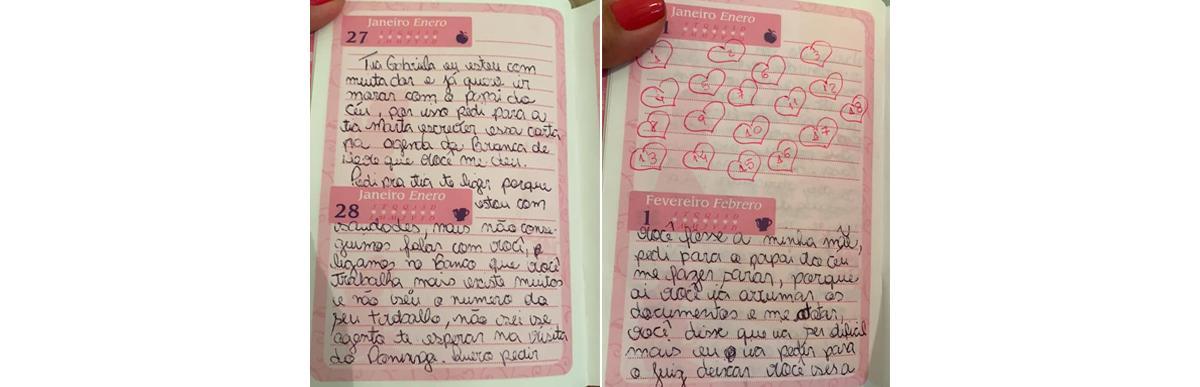 Janeiro Enero
27
Tia Gabriela eu estou com
muita dor e já quero ir
morar com o papai do
céu, por isso pedi para a
tia Marta escrever essa carta
na agenda da Branca de
que você me deu.
Pedi pra tia te ligar porque
estou com
Janeiro Enero
28
saudades, mais não conse-
guimos falar com você,
ligamos no Banco que você
trabalha mais existe muitos
e não sei o numero do
seu trabalho, não sei se
agento te esperar na visita
do Domingo. Quero pedir
Janeiro Enero
1
1 2 3
6
4 5 7 11 12 18
8 9 10 17
13 14 15 16
Fevereiro Febrero
1
você fosse a minha mãe,
pedi para o papai do céu
me fazer sarar, porque
ai você ia arrumar os
documentos e me adotar,
você disse que ia ser dificil
mais eu ia pedir para
o juiz deixar você